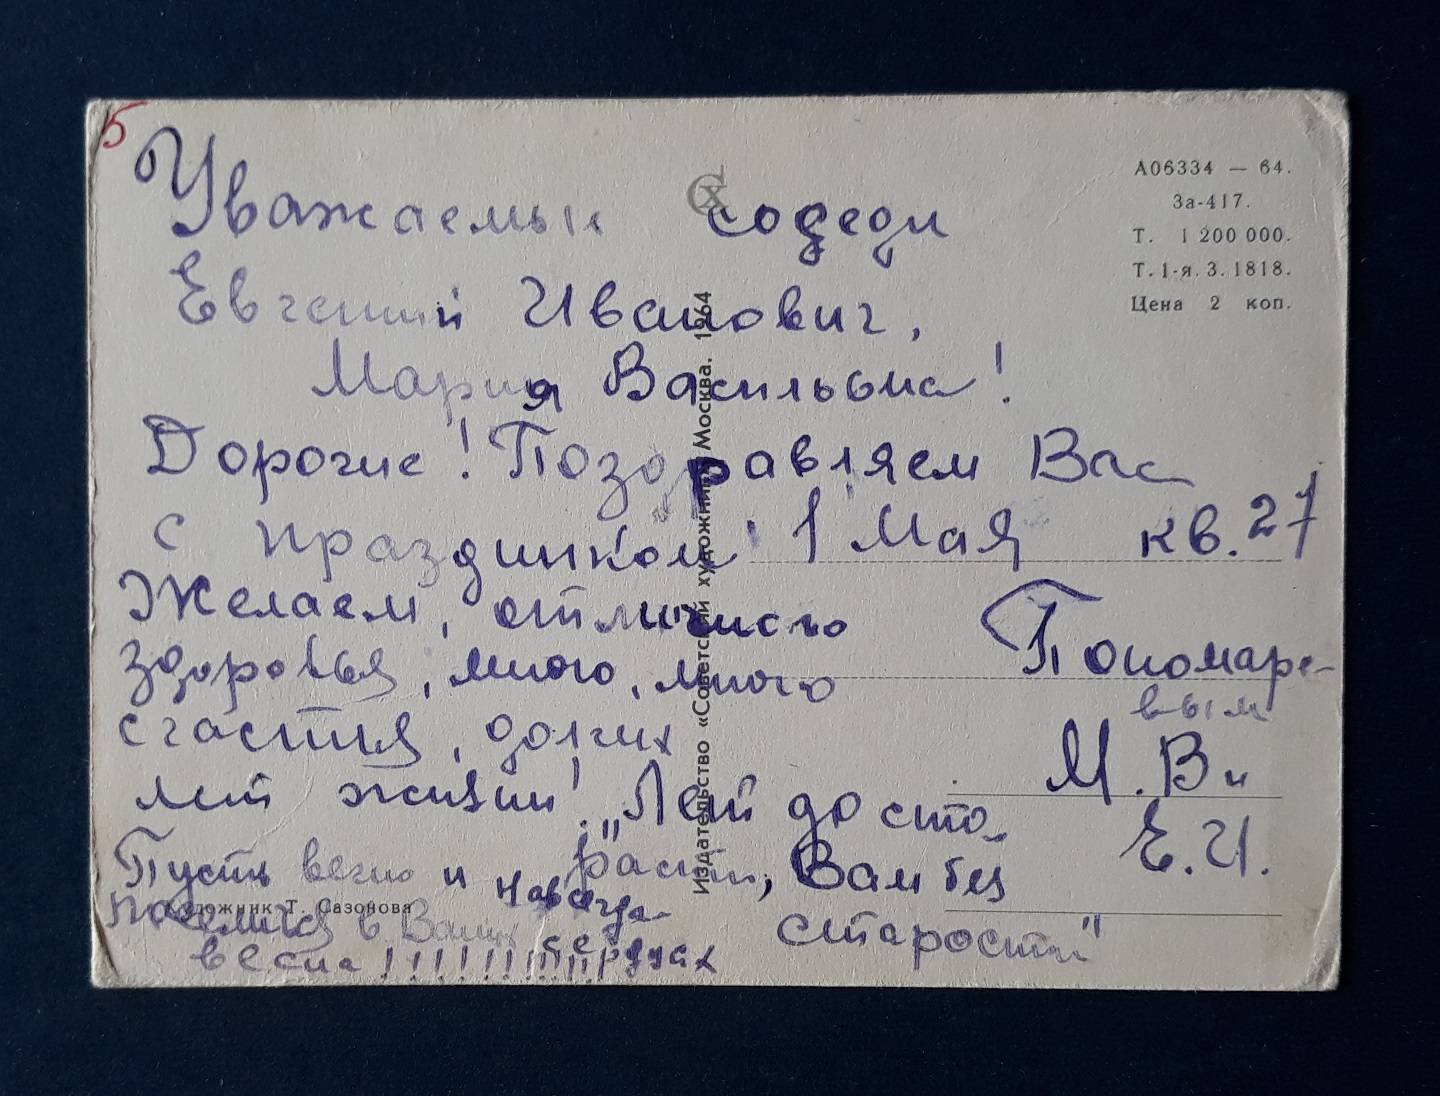 5
Уважаемые соседи
Евгений Иванович,
Мария Васильевна!
Дорогие! Поздравляем Вас
с праздником 1 Мая
Желаем, отличного
здоровья, много, много
счастья, долгих
лет жизни! „Лет до ста
расти, Вам без
старости"
Пусть вечно и навсегда
поселится в Ваших сердцах
весна !!!!!!!!!!!
кв. 27
Пономаре-
вым
М. В и
Е. И.
А06334 — 64.
За-417.
Т. 1 200 000.
Т. 1-я. З. 1818.
Цена 2 коп.
Издательство «Советский художник». Москва. 1964
Художник Т. Сазонова